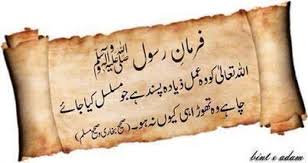 فرمان رسول ﷺ
اللہ تعالیٰ کو وہ عمل ذیادہ پسند ہے جو مسلسل کیا جائے
چاہے وہ تھوڑا ہی کیوں نہ ہو۔ (صحیح بخاری و صحیح مسلم)
bint e adam